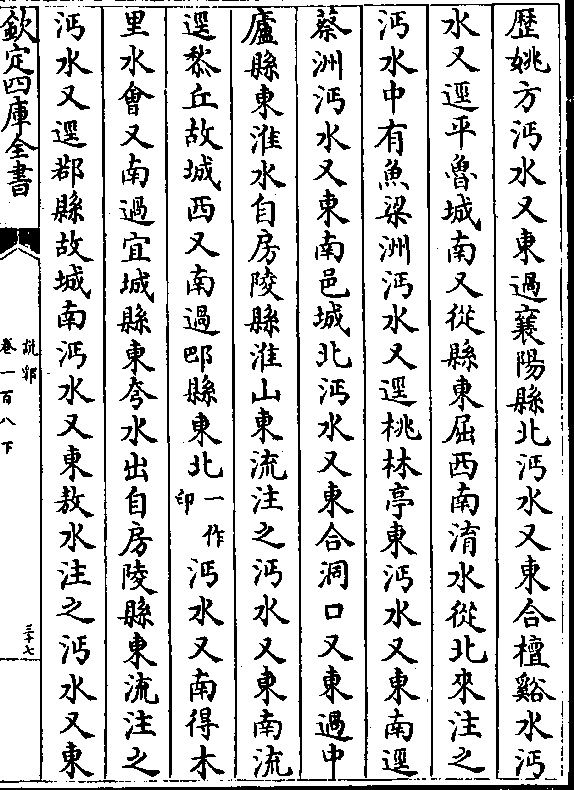 歴姚方沔水又東過襄陽縣北沔水又東合檀谿水沔
水又逕平魯城南又從縣東屈西南淯水從北來注之
沔水中有魚梁洲沔水又逕桃林亭東沔水又東南逕
蔡洲沔水又東南邑城北沔水又東合洞口又東過中
廬縣東淮水自房陵縣淮山東流注之沔水又東南流
逕黎丘故城西又南過䢵縣東北一作印沔水又南得木
里水會又南過宜城縣東夸水出自房陵縣東流注之
沔水又逕鄀縣故城南沔水又東敖水注之沔水又東
欽定四庫全書
說郛
卷一百八下
三十七